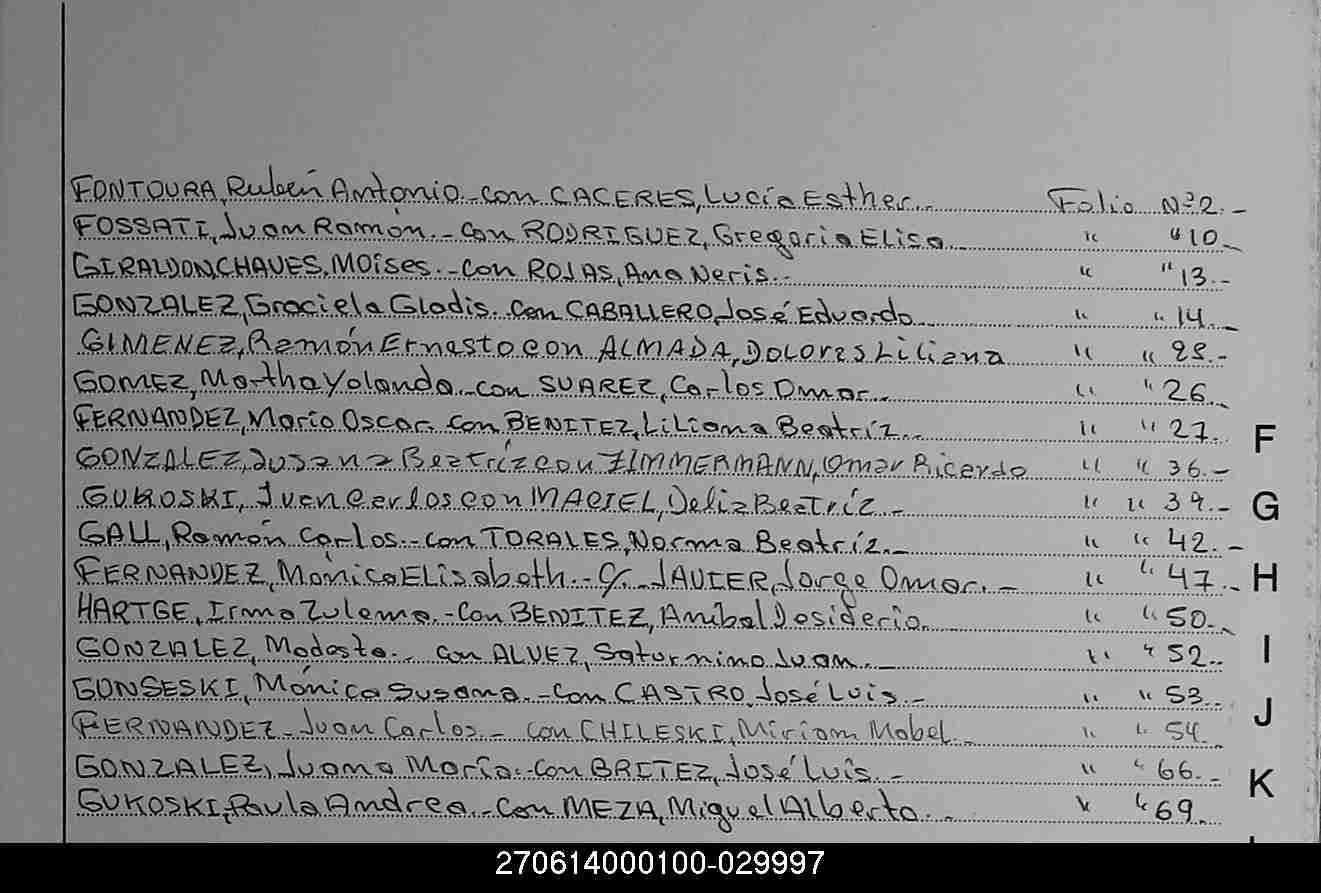 FONTOURA, Rubén Antonio.- con CACERES, Lucía Esther.- Folio Nº 2.-
FOSSATI, Juan Ramón.- con RODRIGUEZ, Gregoria Elisa " " 10.-
GIRALDONCHAVES, Moises.- con ROJAS, Ana Neris.- " " 13.-
GONZALEZ, Graciela Gladis. con CABALLERO, José Eduardo " " 14.-
GIMENEZ, Ramón Ernesto con ALMADA, Dolores Liliana " " 25.-
GOMEZ, Martha Yolanda.- con SUAREZ, Carlos Omar.- " " 26.-
FERNANDEZ, Mario Oscar. con BENITEZ, Liliana Beatríz.- " " 27.-
F
GONZALEZ, Susana Beatríz con ZIMMERMANN, Omar Ricardo " " 36.-
GUKOSKI, Juan Carlos con MACIEL, Delia Beatríz.- " " 39.-
G
GALL, Ramón Carlos.- con TORALES, Norma Beatríz.- " " 42.-
FERNANDEZ, Mónica Elisabeth.- c/. JAVIER, Jorge Omar.- " " 47.-
H
HARTGE, Irma Zulema.- con BENITEZ, Anibal Desiderio. " " 50.-
GONZALEZ, Modesta.- con ALVEZ, Saturnino Juan.- " " 52.-
I
GONSESKI, Mónica Susana.- con CASTRO, José Luis.- " " 53.-
J
FERNANDEZ.- Juan Carlos.- con CHILESKI, Miriam Mabel.- " " 54.-
GONZALEZ, Juana María.- con BRITEZ, José Luis.- " " 66.-
K
GUKOSKI, Paula Andrea.- con MEZA, Miguel Alberto.- " " 69.-
270614000100-029997